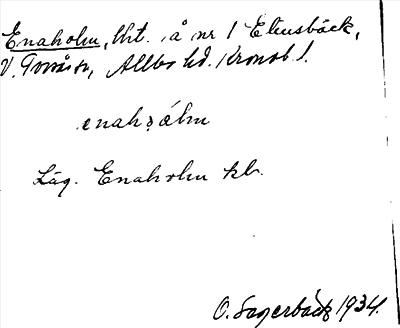 Enaholm, lht. å nr 1 Elinsbäck,
V. Torsås sn, Allbo hd. Kronob. l.
enahọ̀álm
Läg. Enaholm kb.
O. Sagerbäck 1934.